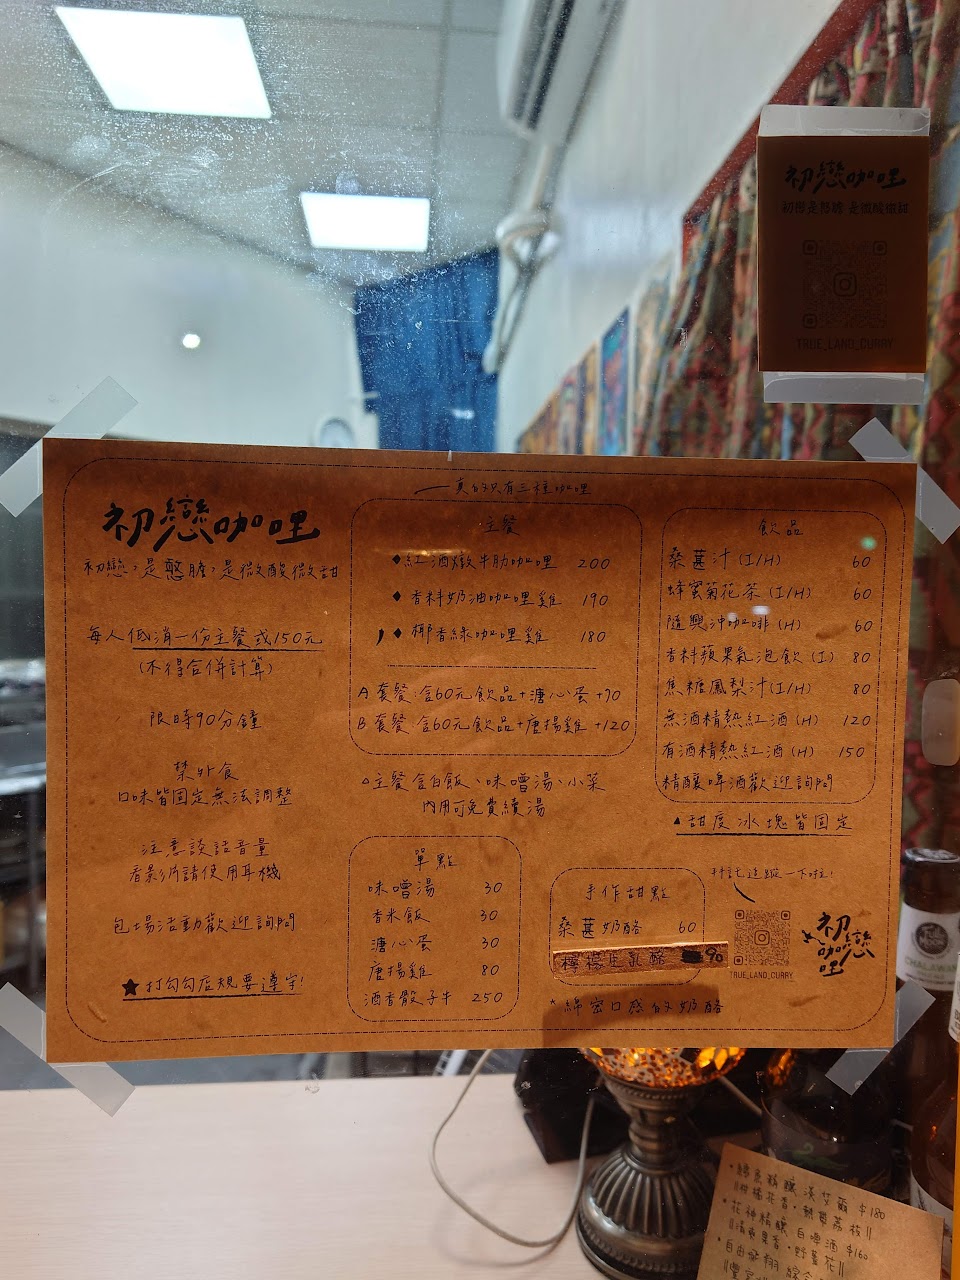 初戀咖哩
TRUE_LAND_CURRY
初戀咖哩
初戀,是憨膽,是微酸微甜
每人低消一份主餐或150元
(不得合併計算)
限時90分鐘
禁外食
口味皆固定無法調整
注意談話音量
看影片請使用耳機
包場活動歡迎詢問
★打勾勾店規要遵守!
真的只有三種咖哩
主餐
◆紅酒燉牛肋咖哩 200
◆香料奶油咖哩雞 190
◆椰香綠咖哩雞 180
A套餐:含60元飲品+溏心蛋+70
B套餐:含60元飲品+唐揚雞+120
△主餐含白飯、味噌湯、小菜
內用可免費續湯
單點
味噌湯 30
香米飯 30
溏心蛋 30
唐揚雞 80
酒香骰子牛 250
飲品
桑葚汁(I/H) 60
蜂蜜菊花茶(I/H) 60
隨興沖咖啡(H) 60
香料蘋果氣泡飲(I) 80
焦糖鳳梨汁(I/H) 80
無酒精熱紅酒(H) 120
有酒精熱紅酒(H) 150
精釀啤酒歡迎詢問
▲甜度冰塊皆固定
手作甜點
桑葚奶酪 60
檸檬巨乳酪 90
*綿密口感的奶酪
拜託追蹤一下啦!
TRUE_LAND_CURRY
初戀咖哩
艾爾 $180
‖柑橘花香·熱帶荔枝‖
·花神精釀 白啤酒 $160
·自由